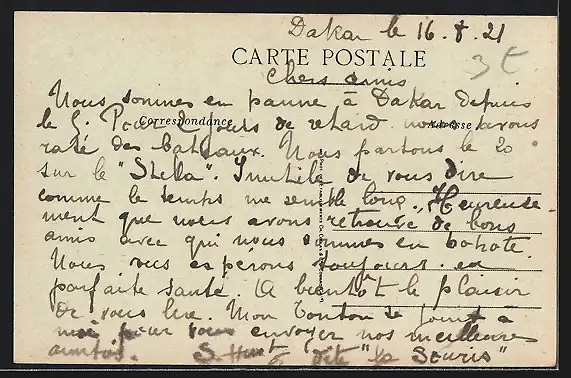 Dakar le 16.8.21
CARTE POSTALE
3€
Chers amis
Nous sommes en panne à Dakar depuis
Correspondance
Adresse
le 5. Pour 2 jours de retard nous avons
raté des bateaux. Nous partons le 20
sur le "Stella". Inutile de vous dire
comme le temps me semble long. Heureuse-
ment que nous avons retrouvé de bons
amis avec qui nous sommes en popote.
Nous vous espérons toujours en
parfaite santé. A bientôt le plaisir
de vous lire. Mon Tonton se joint à
moi pour vous envoyer nos meilleures
amitiés. dite "la Souris"